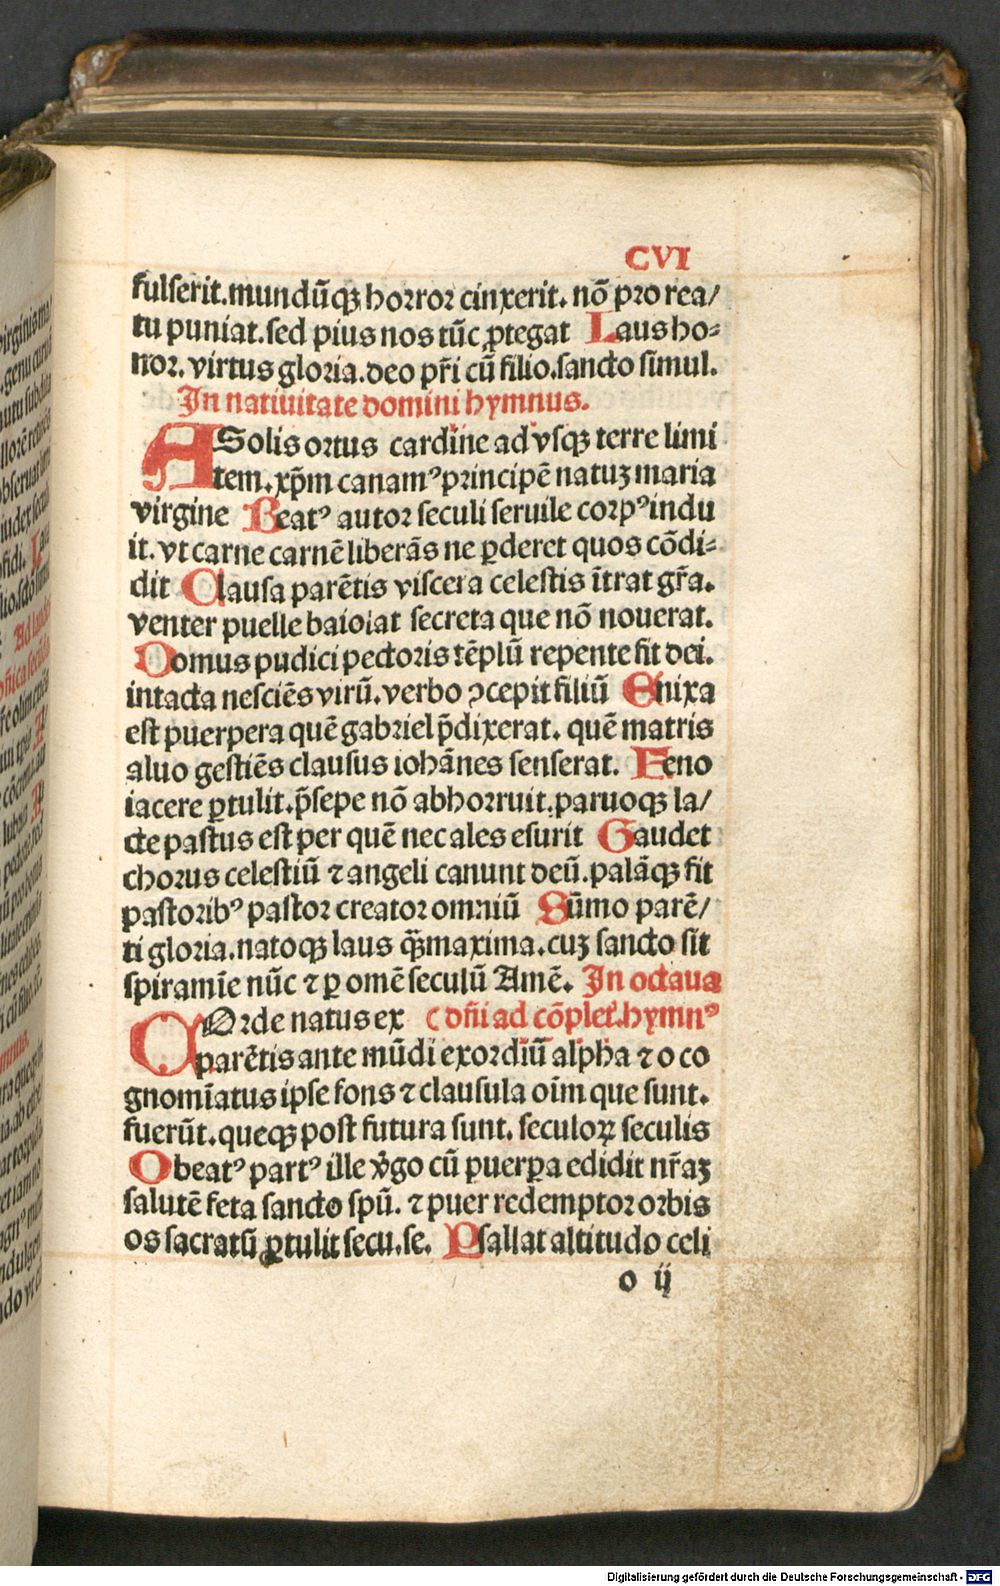 CVI
fulserit.mundūqꝫ horror cinxerit. nō pro rea/
tu puniat.sed pius nos tūc ꝓtegat Laus ho-
nor. virtus gloria.deo pr̄i cū filio.sancto simul.
In natiuitate domini hymnus.
ASolis ortus cardine ad vsqꝫ terre limi
tem.xp̄m canamꝰ principē natuꝫ maria
virgine Beatꝰ autor seculi seruile corpꝰ indu
it.vt carne carnē liberās ne ꝑderet quos cōdi-
dit Clausa parētis viscera celestis ītrat gr̄a.
venter puelle baioiat secreta que nō nouerat.
Domus pudici pectoris tēplū repente fit dei.
intacta nesciēs virū.verbo ꝯcepit filiū Enixa
est puerpera quē gabriel p̄dixerat. quē matris
aluo gestiēs clausus iohānes senserat. Feno
iacere ꝑtulit.p̄sepe nō abhorruit.paruoqꝫ la/
cte pastus est per quē nec ales esurit Gaudet
chorus celestiū ⁊ angeli canunt deū.palāqꝫ fit
pastoribꝰ pastor creator omniū Sūmo parē/
ti gloria.natoqꝫ laus qꝫ̄ maxima.cuꝫ sancto sit
spiramīe nūc ⁊ ꝑ omē seculū Amē. In octaua
COrde natus ex ( dn̄i ad cōplet̄.hymnꝰ
parētis ante mūdi exordiū alpha ⁊ o co
gnomīatus ipse fons ⁊ clausula oīm que sunt.
fuerūt.queqꝫ post futura sunt. seculoꝝ seculis
O beatꝰ partꝰ ille v̓go cū puerꝑa edidit nr̄aꝫ
salutē feta sancto spū. ⁊ puer redemptor orbis
os sacratū ꝓtulit secu.se. Psallat altitudo celi
o ij
Digitalisierung gefördert durch die Deutsche Forschungsgemeinschaft - DFG